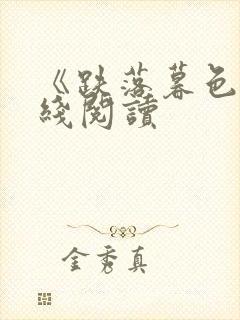 《跌落暮色
綫閱讀
金秀真